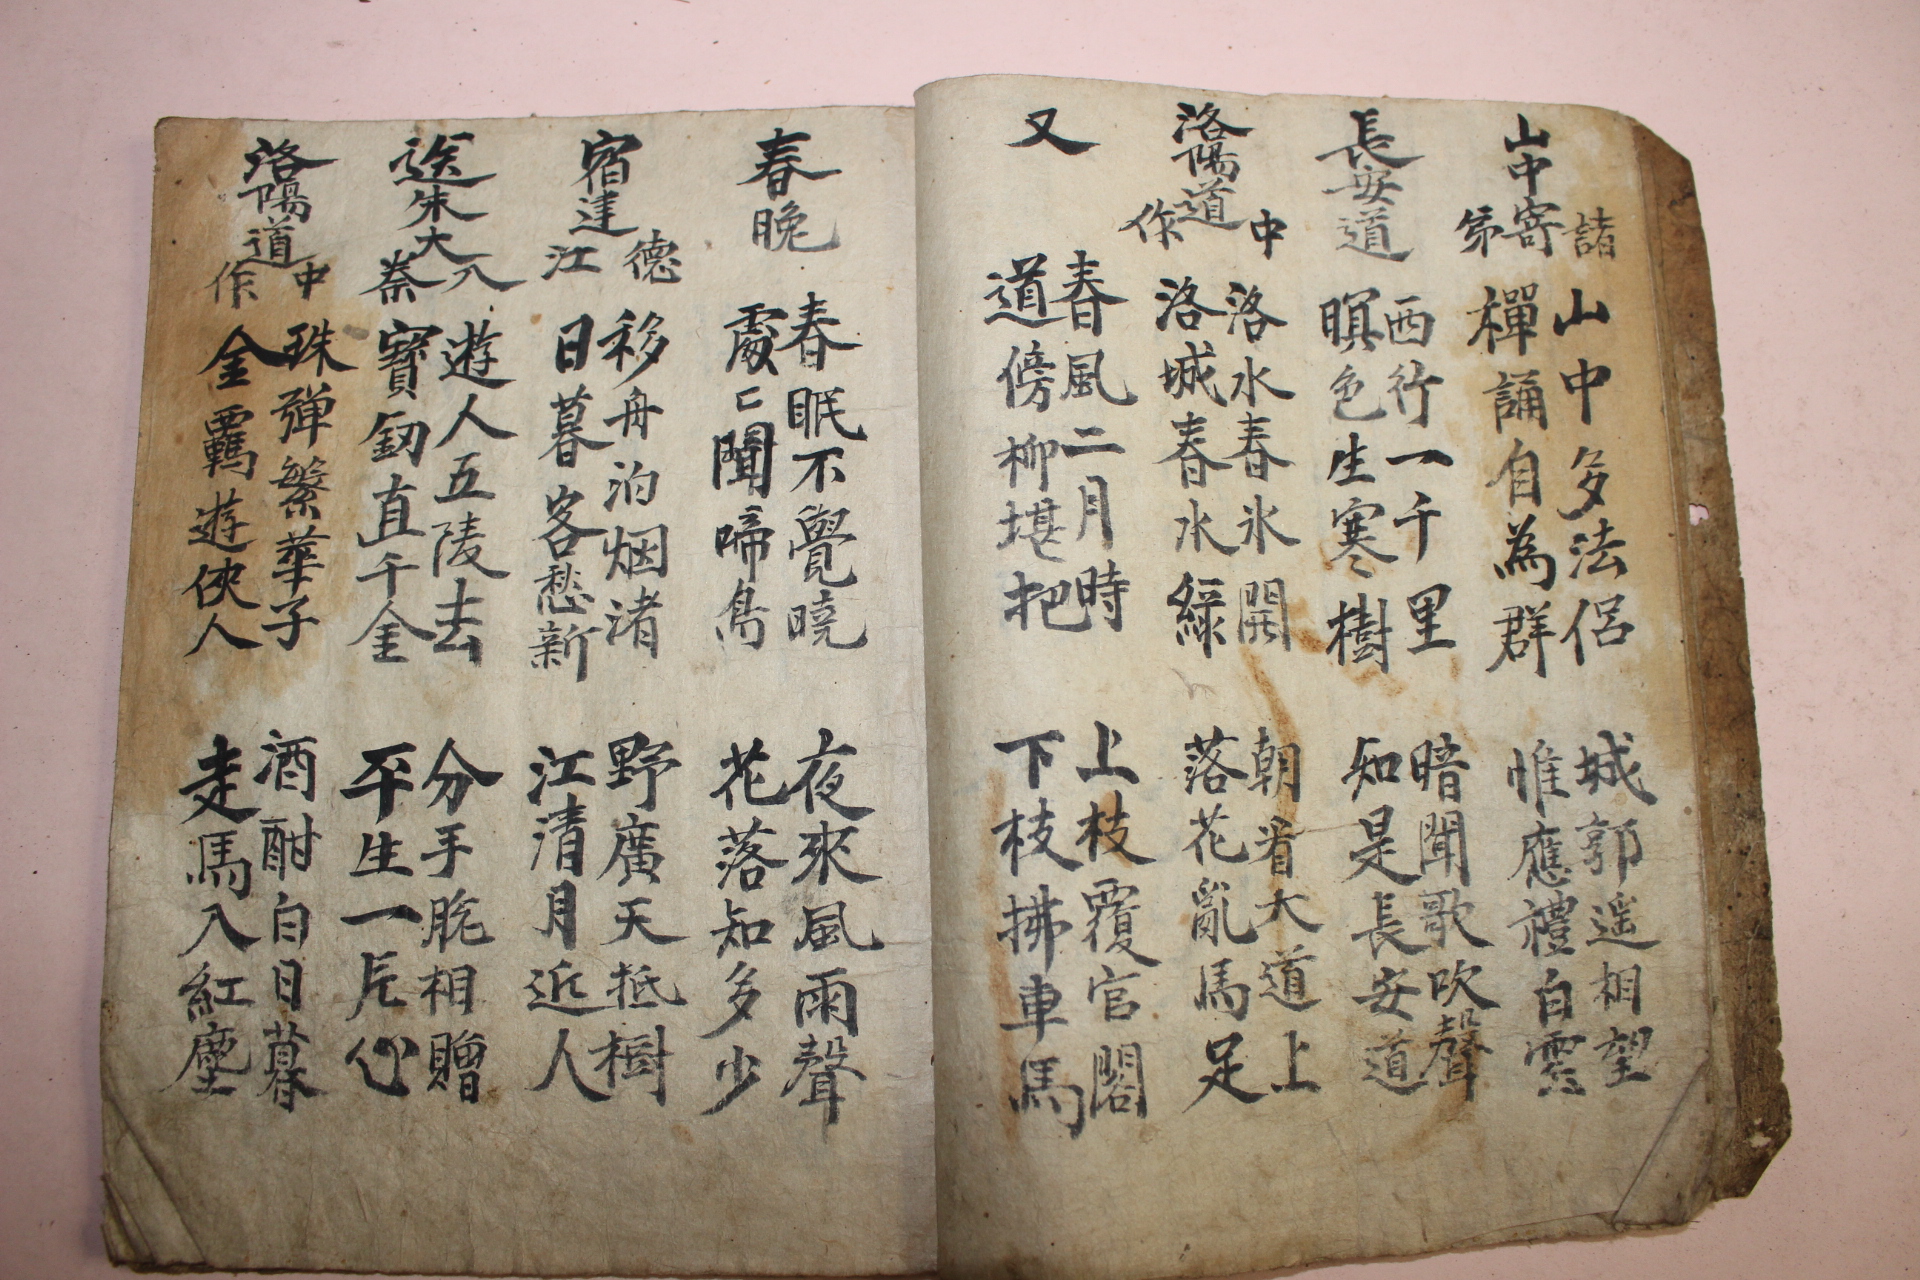 山中寄諸弟
山中多法侶
禪誦自為群
城郭遥相望
惟應禮白雲
長安道
西行一千里
暝色生寒樹
暗聞歌吹聲
知是長安道
洛陽道中作
洛水春氷開
洛城春水綠
朝看大道上
落花亂馬足
又
春風二月時
道傍柳堪把
上枝覆官閣
下枝拂車馬
春晚
春眠不覺曉
處〻聞啼鳥
夜來風雨聲
花落知多少
宿建德江
移舟泊烟渚
日暮客愁新
野廣天抵樹
江清月近人
送朱大入秦
遊人五陵去
寳釰直千金
分手脫相贈
平生一片心
洛陽道中作
珠彈繁華子
金羈遊俠人
酒酣白日暮
走馬入紅塵